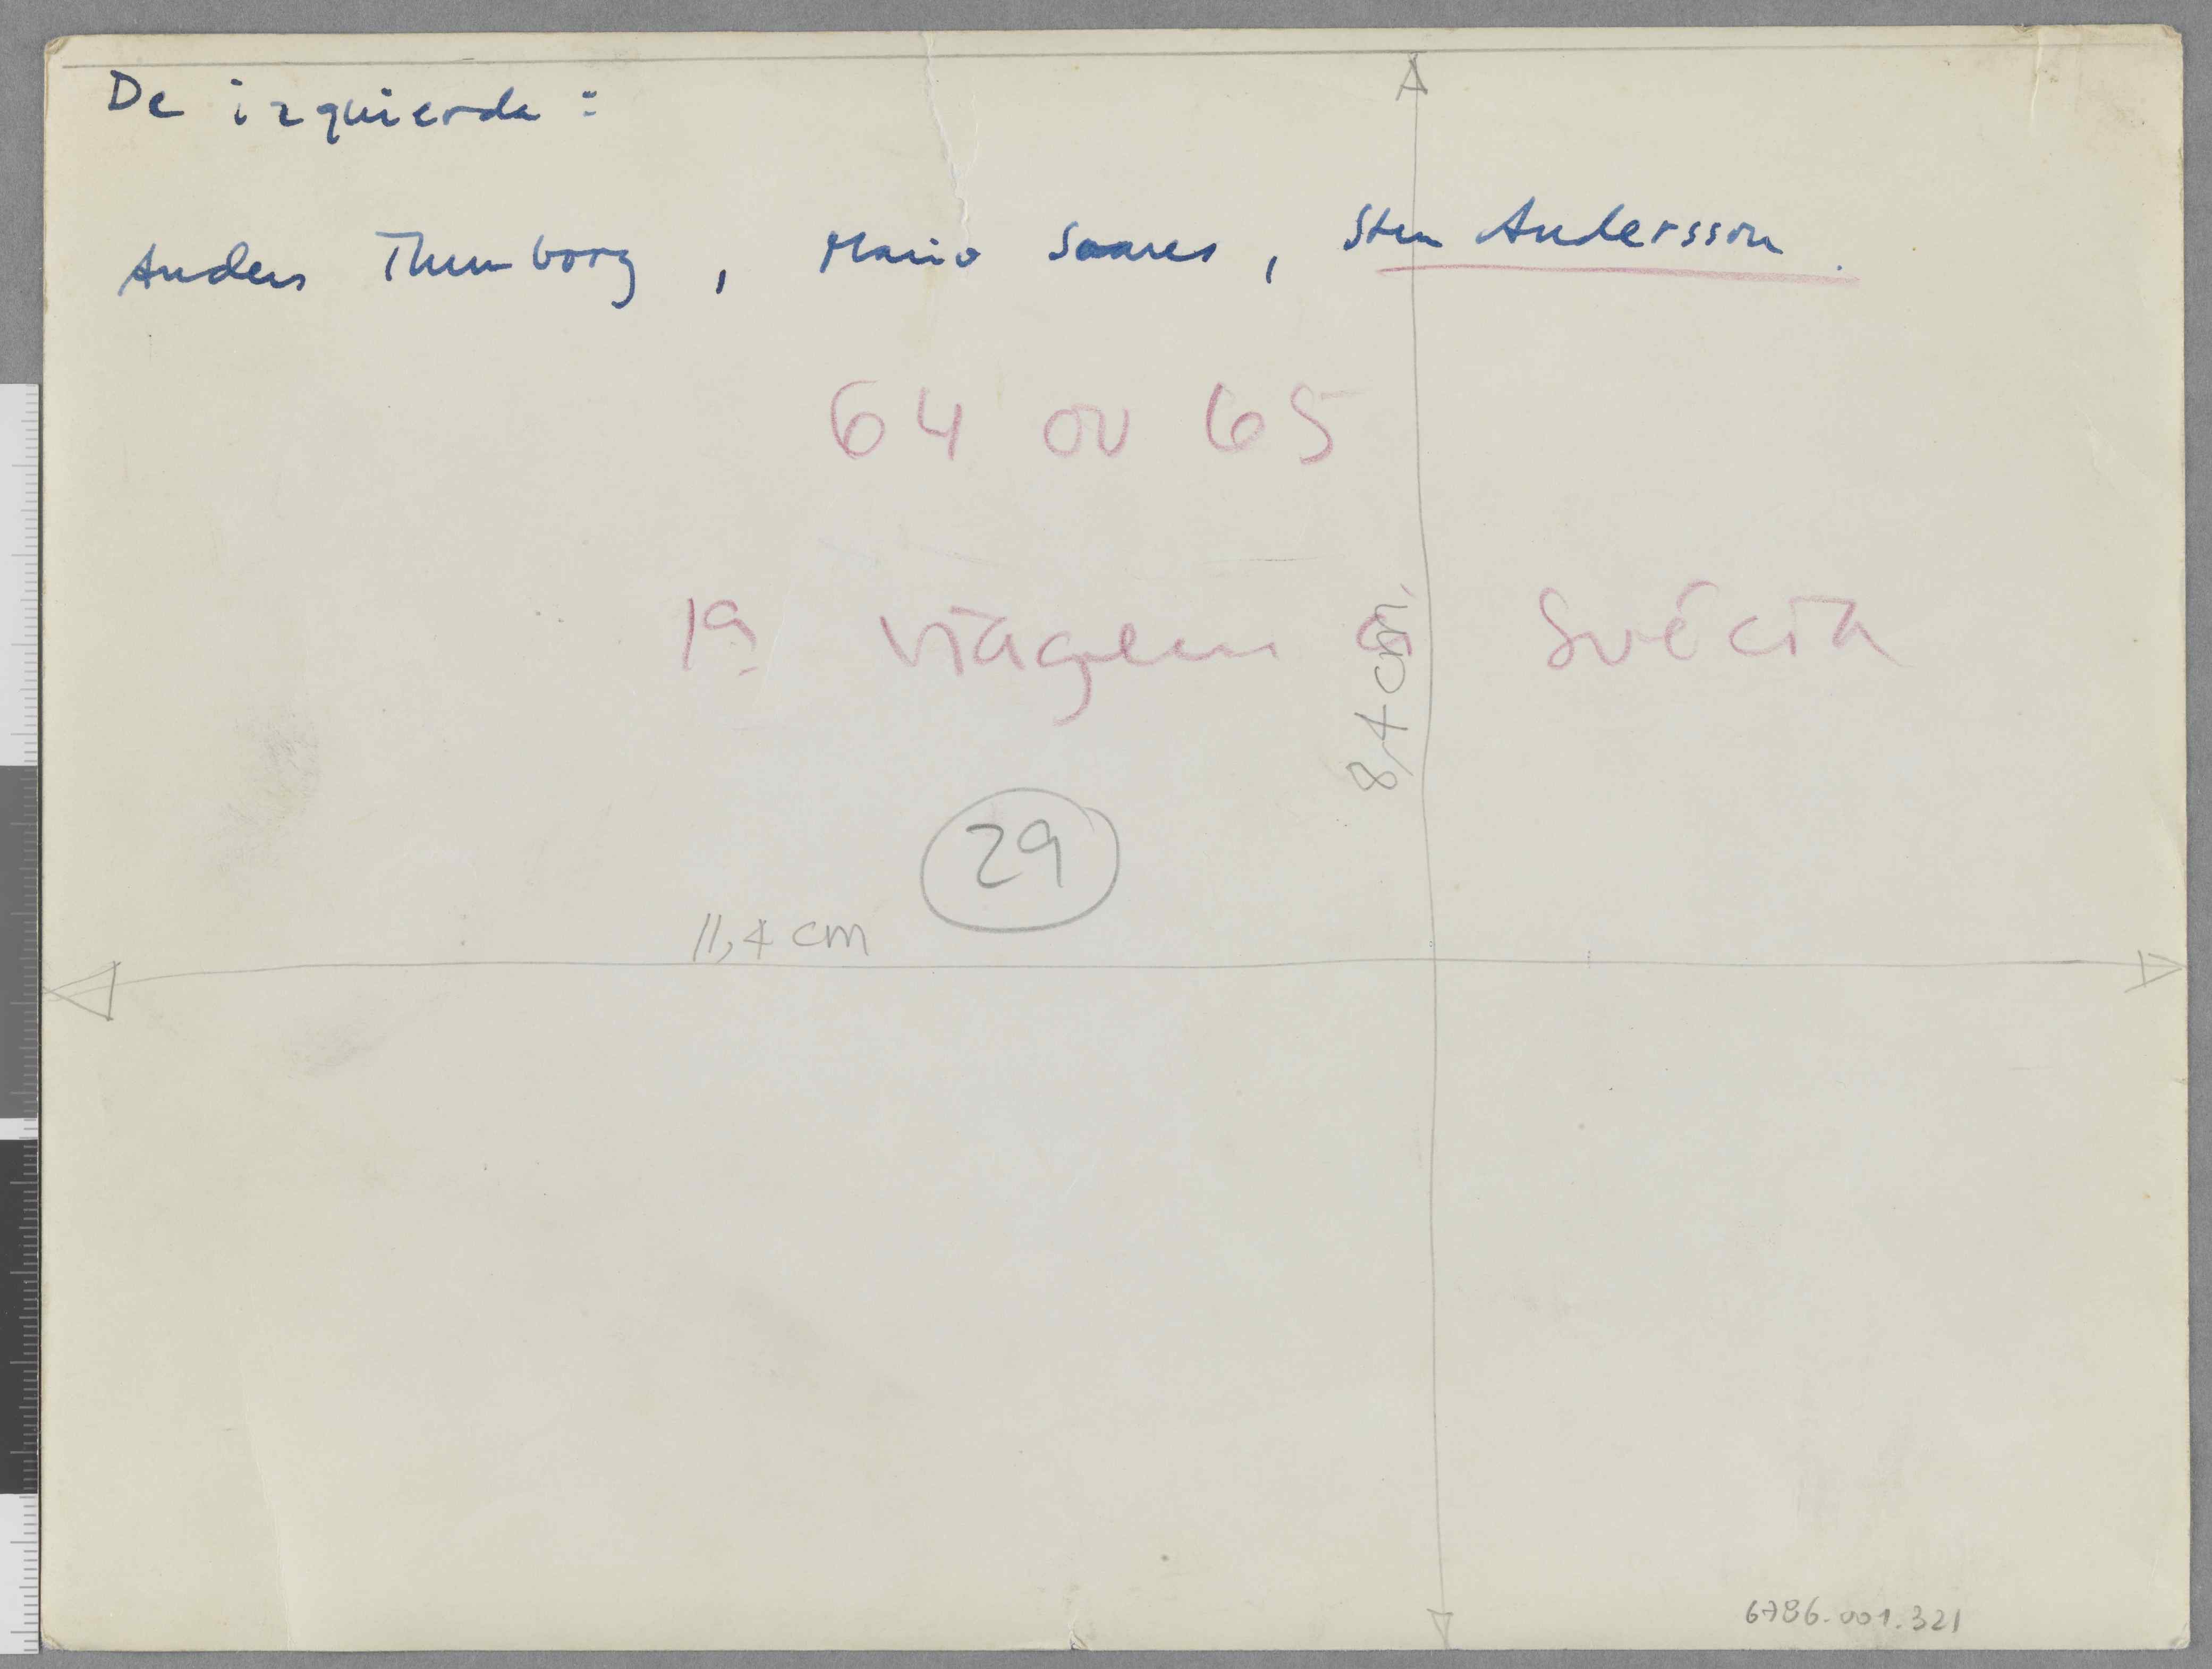 De izquierda:
Anders Thunborg, Mario Soares, Sten Andersson.
64 ou 65
1ª viagem à Suécia
8,4 cm.
29
11,4 cm
6786.001.321